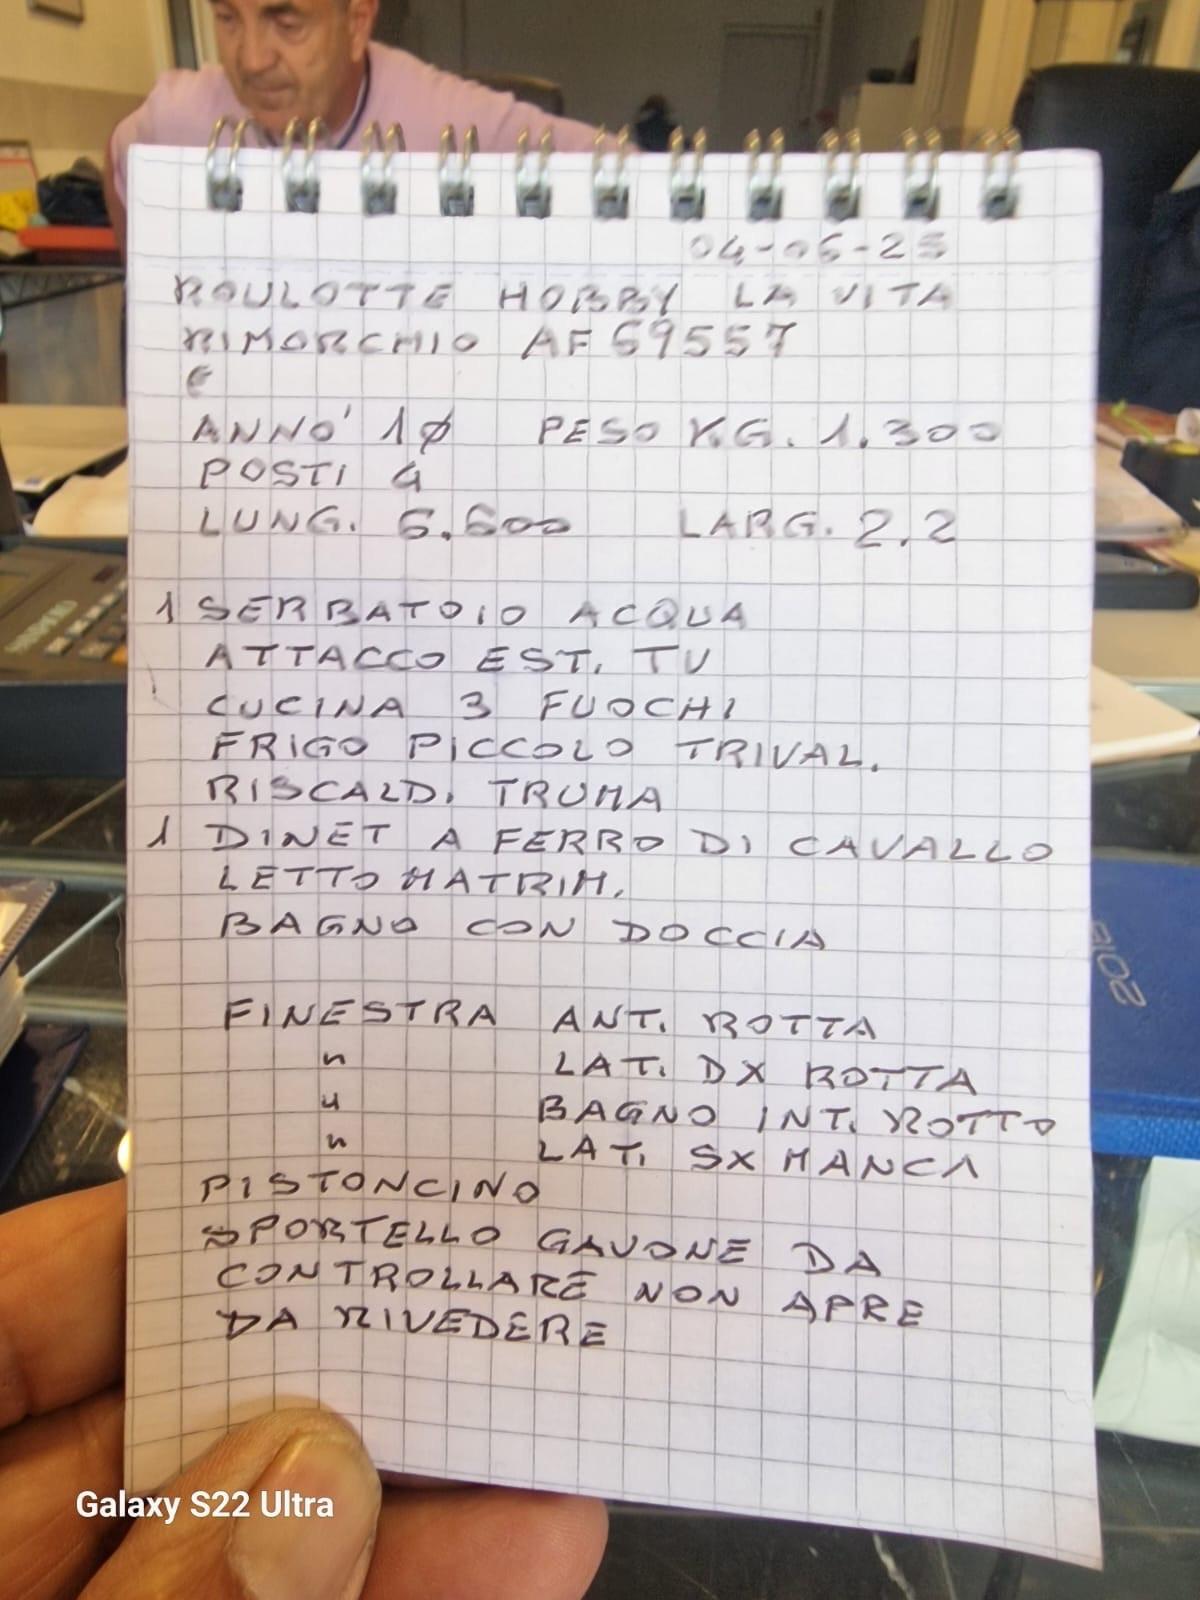 04-06-25
ROULOTTE HOBBY LA VITA
RIMORCHIO AF69557
E
ANNO' 10 PESO KG. 1.300
POSTI 4
LUNG. 6.600 LARG. 2.2
1 SERBATOIO ACQUA
ATTACCO EST. TV
CUCINA 3 FUOCHI
FRIGO PICCOLO TRIVAL.
RISCALD. TRUMA
1 DINET A FERRO DI CAVALLO
LETTO MATRIM.
BAGNO CON DOCCIA
FINESTRA ANT. ROTTA
" LAT. DX ROTTA
" BAGNO INT. ROTTO
" LAT. SX MANCA
PISTONCINO
SPORTELLO GAVONE DA
CONTROLLARE NON APRE
DA RIVEDERE
Galaxy S22 Ultra